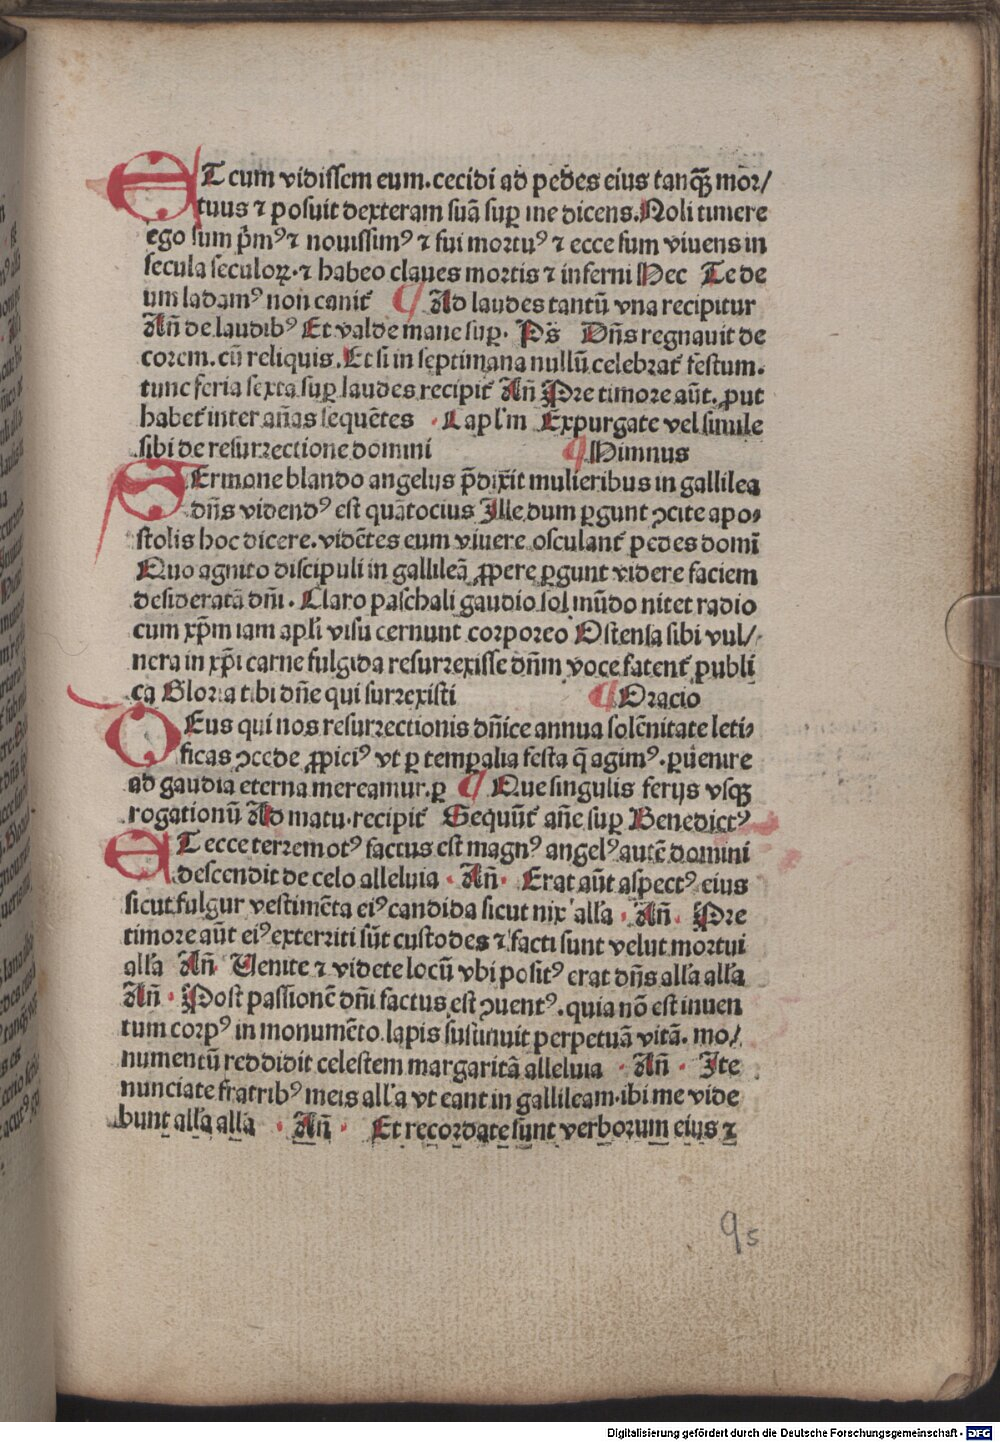 ET cum vidissem eum. cecidi ad pedes eius tanqꝫ mor/
tuus ⁊ posuit dexteram suā suꝑ me dicens. Noli timere
ego sum p̄mꝰ ⁊ nouissimꝰ ⁊ fui mortuꝰ ⁊ ecce sum viuens in
secula seculoꝝ · ⁊ habeo claues mortis ⁊ inferni Nec Te de
um ladamꝰ non canit᷑ ¶ Ad laudes tantū vna recipitur
An̄ de laudibꝰ Et valde mane suꝑ · Ps̄ Dn̄s regnauit de
corem. cū reliquis. Et si in septimana nullū celebrat᷑ festum.
tunc feria sexta suꝑ laudes recipit᷑ An̄ Pre timore aūt. ꝓut
habet᷑ inter an̄as sequētes · Capl'm Expurgate vel simile
sibi de resurrectione domini ¶ Himnus
SErmone blando angelus p̄dixit mulieribus in gallilea
dn̄s videndꝰ est quātocius Ille dum ꝑgunt ꝯcite apo-
stolis hoc dicere. vidētes eum viuere osculant᷑ pedes domī
Quo agnito discipuli in gallileā ꝓpere ꝑgunt videre faciem
desideratā dn̄i. Claro paschali gaudio sol mūdo nitet radio
cum xp̄m iam apl'i visu cernunt corporeo Ostensa sibi vul/
nera in xp̄i carne fulgida resurrexisse dn̄m voce fatent᷑ publi
ca Gloria tibi dn̄e qui surrexisti ¶ Oracio
DEus qui nos resurrectionis dn̄ice annua solēnitate leti-
ficas ꝯcede ꝓpiciꝰ vt ꝑ temꝑalia festa q̄ agimꝰ. ꝑuenire
ad gaudia eterna mereamur. ꝑ ¶ Que singulis ferijs vsqꝫ
rogationū Ad matu. recipit᷑ Sequūt᷑ an̄e suꝑ Benedictꝰ
ET ecce terremotꝰ factus est magnꝰ angelꝰ autē domini
descendit de celo alleluia · An̄ · Erat aūt aspectꝰ eius
sicut fulgur vestimēta eiꝰ candida sicut nix all'a · An̄ · Pre
timore aūt eiꝰ exterriti sūt custodes ⁊ facti sunt velut mortui
all'a An̄ Venite ⁊ videte locū vbi positꝰ erat dn̄s all'a all'a
An̄ · Post passionē dn̄i factus est ꝯuentꝰ. quia nō est inuen
tum corpꝰ in monumēto. lapis sustinuit perpetuā vitā. mo/
numentū reddidit celestem margaritā alleluia · An̄ · Ite
nunciate fratribꝰ meis all'a vt eant in gallileam. ibi me vide
bunt all'a all'a · An̄ · Et recordate sunt verborum eius ⁊
95
Digitalisierung gefördert durch die Deutsche Forschungsgemeinschaft - DFG